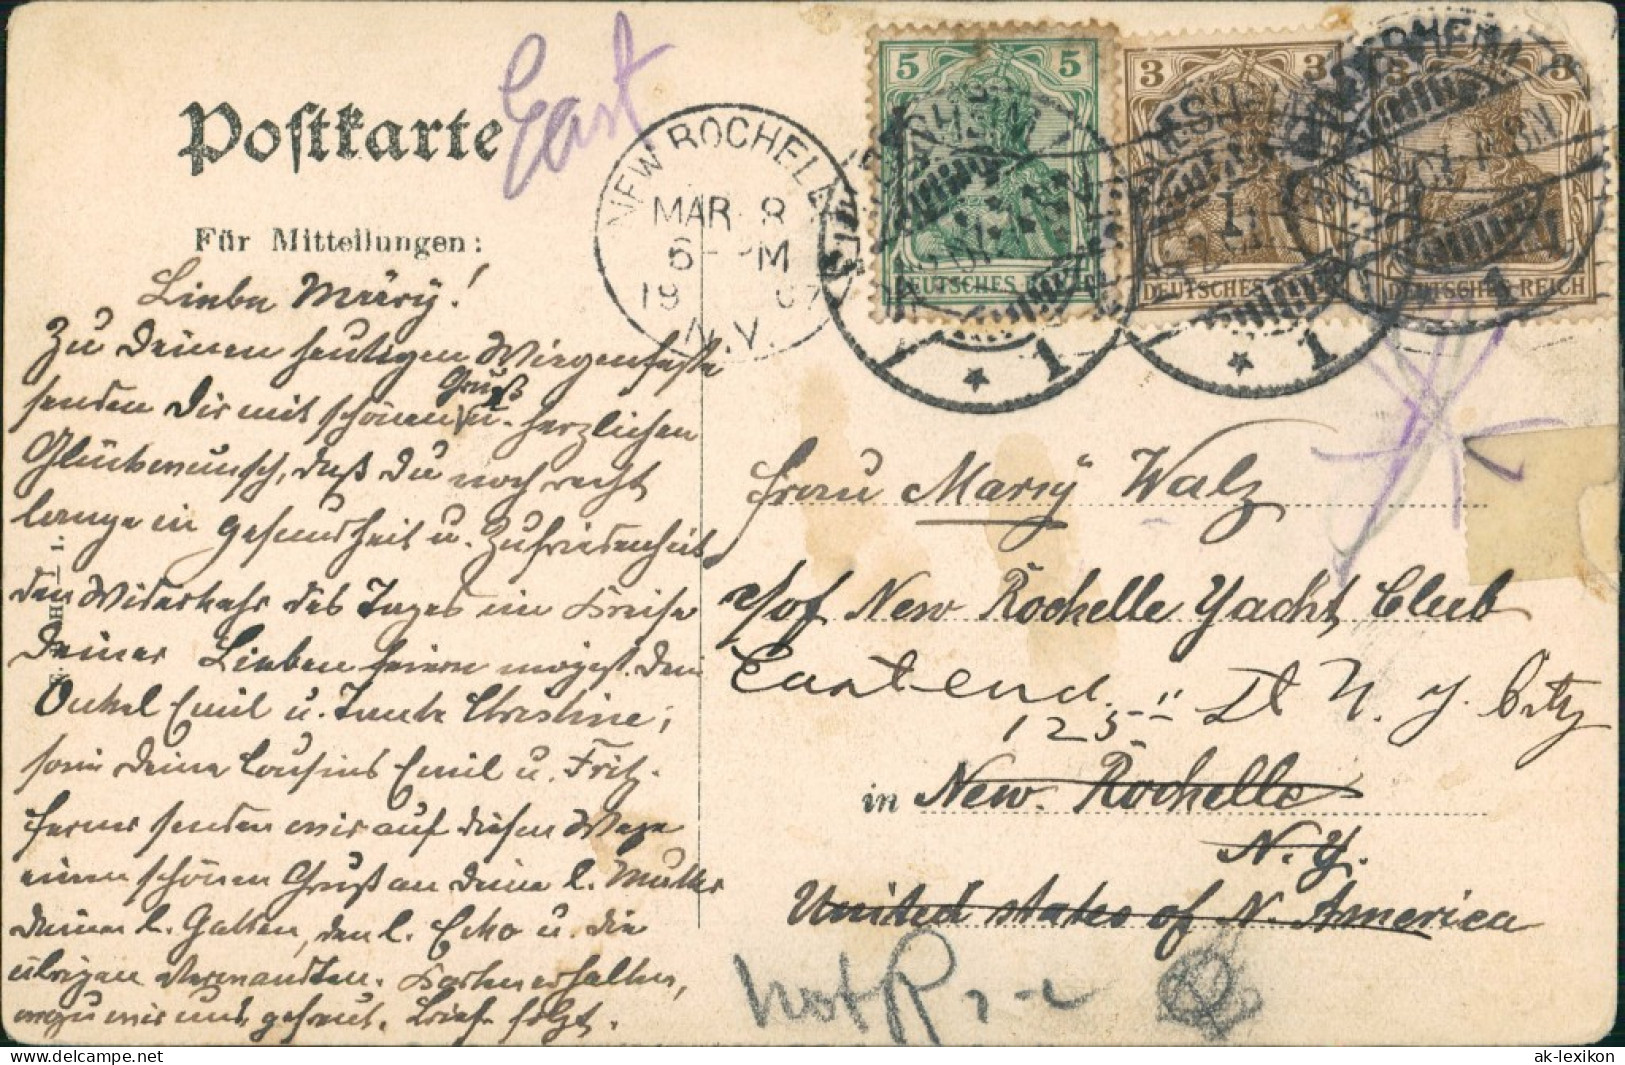 Postkarte
East
Für Mitteilungen:
NEW ROCHELLE
MAR 8
6- PM
19 07
N.Y.
5 5
DEUTSCHES REICH
3 3
DEUTSCHES REICH
3 3
DEUTSCHES REICH
* 1
* 1
1
Liebe Märrÿ!
Zu Deinem heutigen Wiegenfeste
senden Dir mit schönem Gruß u. herzlichen
Glückwunsch, daß Du noch recht
lange in Gesundheit u. Zufriedenheit
den Wiederkehr des Tages im Kreise
Deiner Lieben feiern mögest. Dein
Onkel Emil u. Tante Christine;
sowie Deine Cousins Emil u. Fritz.
Ferner senden wir auf diesem Wege
einen schönen Gruß an Deine l. Mutter
Deinen l. Gatten, den l. u. die
übrigen Verwandten. Karten erhalten,
wozu wir uns gefreut. Brief folgt.
Frau Marrÿ Walz
c/of New Rochelle Yacht Club
East end. 125 St N. Y. City
in New. Rochelle
N. Y.
United states of N. America
not R
ak-lexikon.com